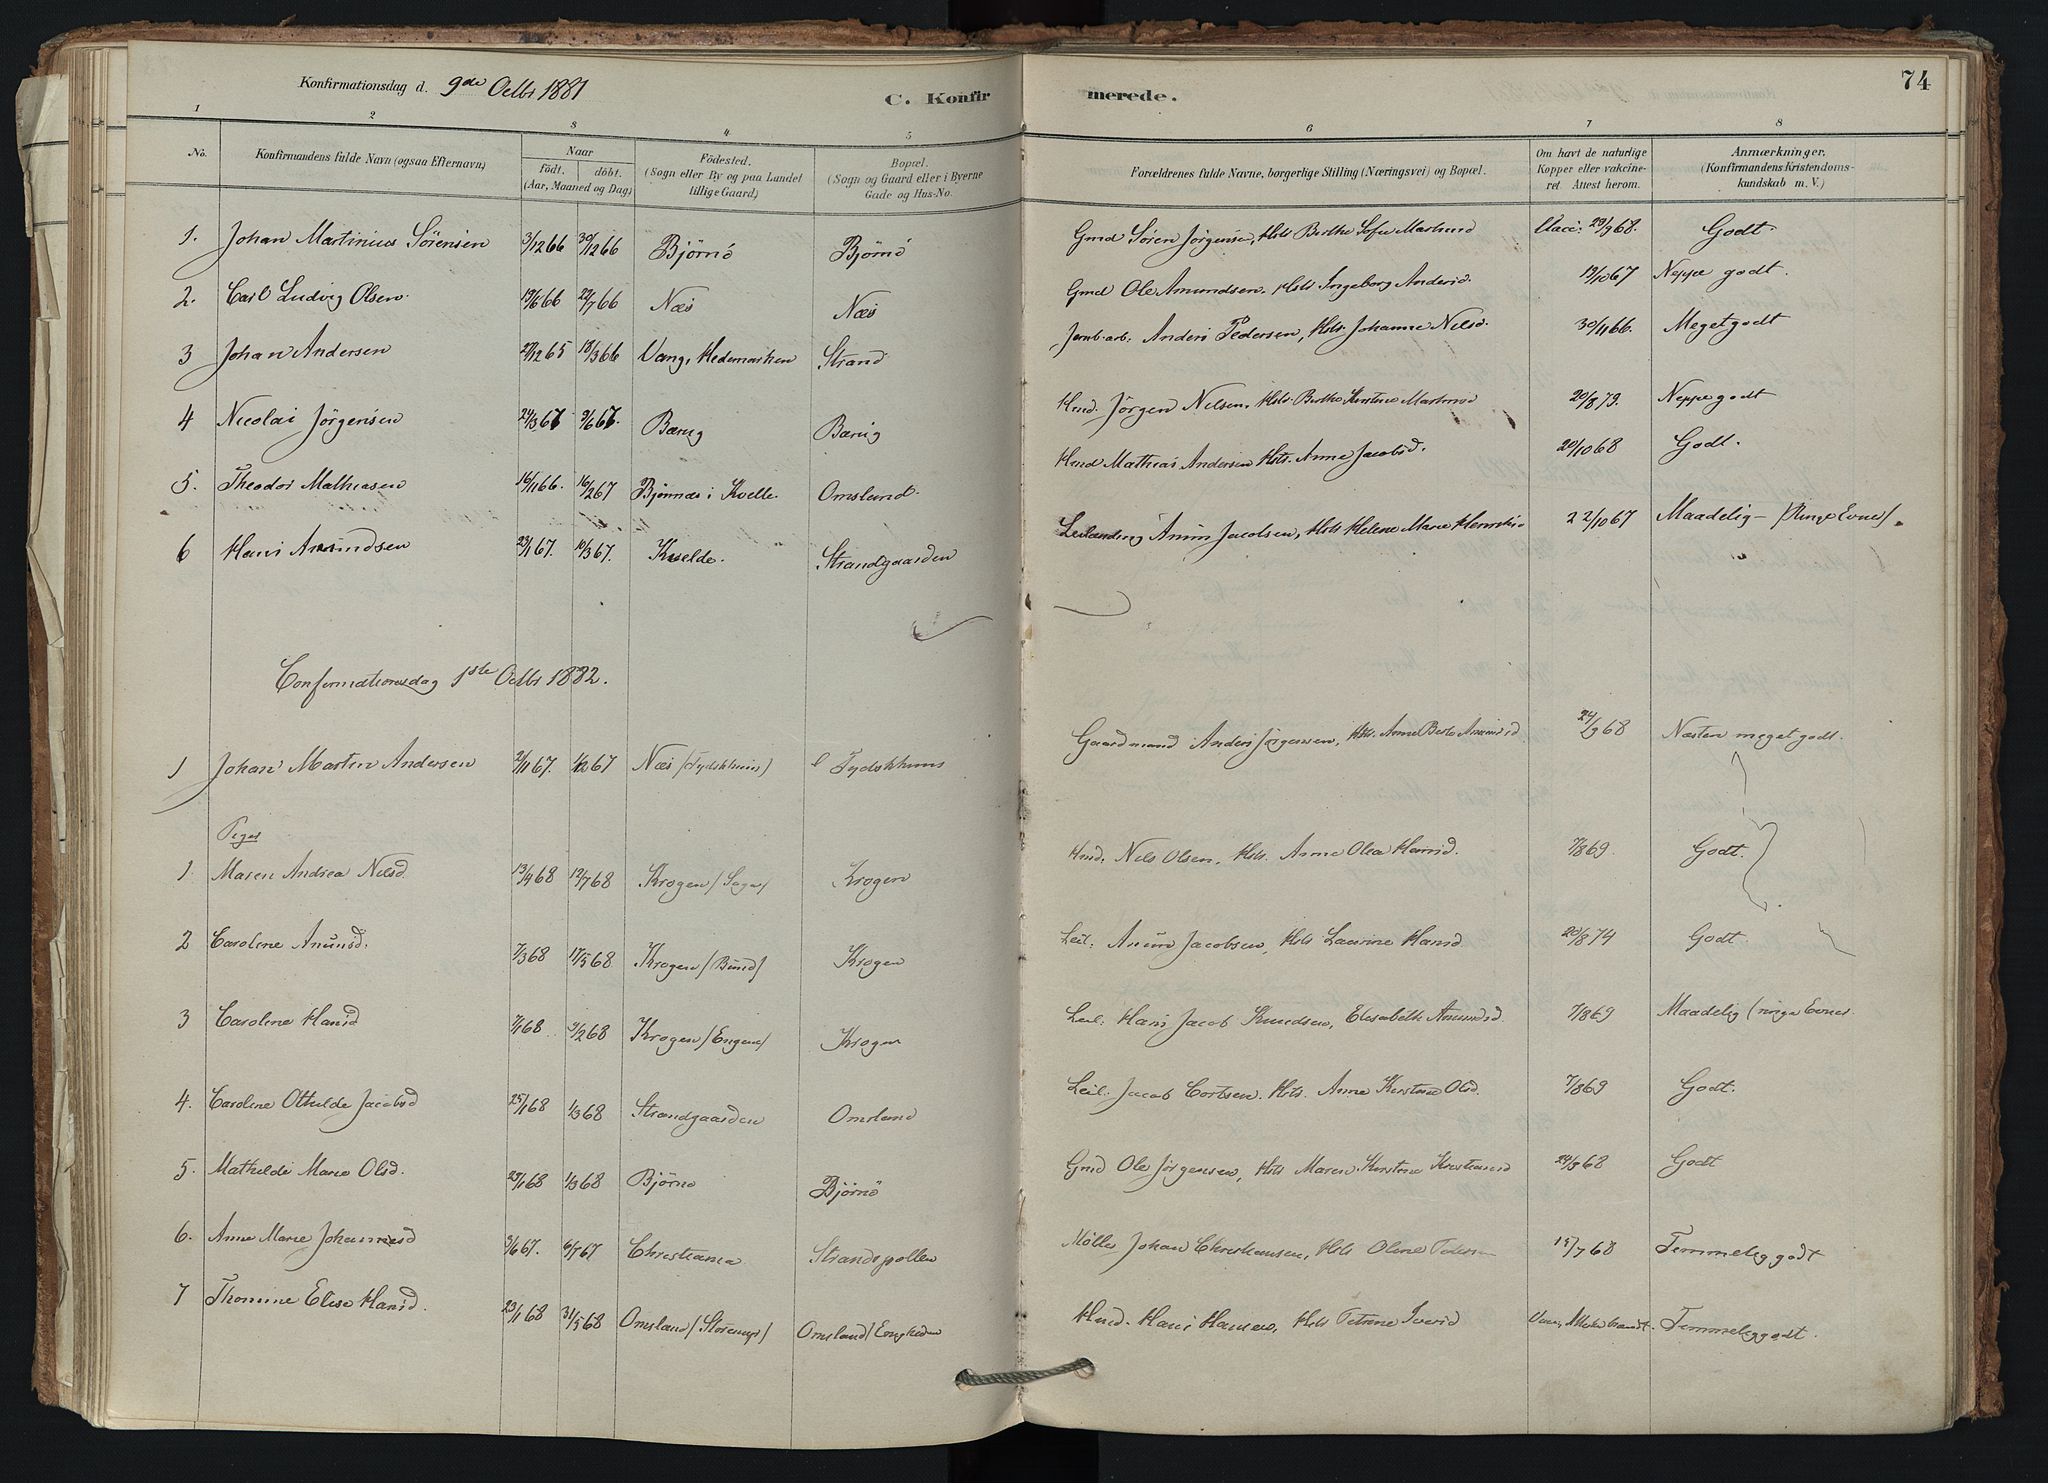 Konfirmationsdag d. 9de Octbr 1881
C. Konfirmerede.
74
1 2 3 4 5 6 7 8
No. Konfirmandens fulde Navn (ogsaa Efternavn) Naar født. døbt. (Aar, Maaned og Dag) Födested. (Sogn eller By og paa Landet tillige Gaard) Bopæl. (Sogn og Gaard eller i Byerne Gade og Hus-No. Forældrenes fulde Navne, borgerlige Stilling (Næringsvei) og Bopæl. Om havt de naturlige Kopper eller vakcineret. Attest herom. Anmærkninger. (Konfirmandens Kristendomskundskab m. V.)
1. Johan Martinius Sørensen 3/12 66 30/12 66 Bjørnö Bjørnö Gmd Søren Jørgensen, Hst. Berthe Sofie Mathisd Vacc. 29/9 68. Godt.
2. Carl Ludvig Olsen. 19/6 66 22/7 66 Næs Næs Gmd Ole Amundsen. Hst. Ingeborg Andersd. 19/10 67 Neppe godt.
3 Johan Andersen 27/12 65 18/3 66 Vang, Hedemarken Strand Jernb. arb. Anders Pedersen, Hst. Johanne Nilsd. 30/11 66. Meget godt
4 Nicolai Jørgensen 24/3 67 9/6 67. Bærug Bærug Hmd. Jørgen Nilsen, Hst. Berthe Kirstine Mathisd 20/8 79. Neppe godt
5. Theodor Mathiasen 16/11 66. 16/2 67 Bjønnes i Kvelle. Omsland. Hmd Mathias Andersen Hst. Anne Jacobsd. 20/10 68 Godt.
6 Hans Anundsen 23/1 67. 10/3 67. Kvelde. Strandgaarden Leilænding Anun Jacobsen, Hst Helene Marie Henriksd 22/10 67 Maadelig - (Ringe Evner).
Confirmationsdag 1ste Octbr 1882.
1 Johan Martin Andersen 2/11 67. 1/12 67 Næs (Tydskhuus) Tydskhuus Gaardmand Anders Jørgensen, Hst. Anne Berte Anunsd 24/9 68 Næsten meget godt.
Piger
1 Maren Andrea Nilsd. 13/4 68 12/7 68 Krogen (Saga) Krogen Hmd. Nils Olsen, Hst. Anne Olea Hansd. 7/8 69. Godt.
2 Caroline Anunsd. 7/3 68 17/5 68 Krogen (Bund) Krogen Leil. Anun Jacobsen, Hst Laurine Hansd 20/8 74 Godt.
3 Caroline Hansd 7/1 68. 9/2 68 Krogen (Engene) Krogen Leil. Hans Jacob Knudsen, Elisabeth Amundsd. 7/8 69 Maadelig (ringe Evner.
4. Caroline Othilde Jacobsd 25/1 68 1/3 68 Strandgaarden Omsland Leil. Jacob Cortsen. Hst. Anne Kirstine Olsd. 7/8 69 Godt.
5. Mathilde Marie Olsd. 29/1 68 1/3 68 Bjørnø Bjørnö Gmd Ole Jørgensen, Hst. Maren Kirstine Kristiansd 24/9 68 Godt
6. Anne Marie Johannesd 9/6 67. 6/7 67 Christiania Strandspollen Møller Johan Christiansen, Hst Oline Peders 15/7 68 Temmelig godt
7 Thomine Elise Hansd. 23/1 68 31/5 68 Omsland (Storeng) Omsland (Engheden Hmd. Hans Hansen, Hst Petrine Iversd Temmelig godt.